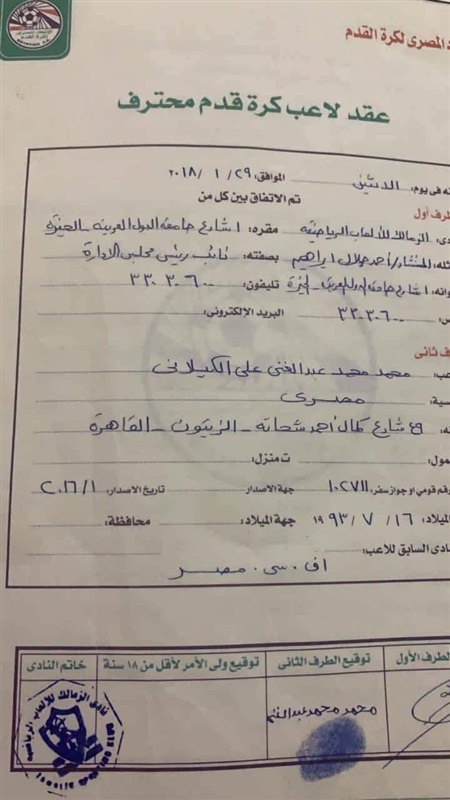 د المصرى لكرة القدم
عقد لاعب كرة قدم محترف
نه فى يوم: الاثنين الموافق: ٢٩ / ١ / ٢٠١٨
تم الاتفاق بين كل من
طرف أول
دى: الزمالك للألعاب الرياضية مقره: ١ شارع جامعة الدول العربية - الجيزة
ثله: المستشار / أحمد جلال ابراهيم بصفته: نائب رئيس مجلس الادارة
وانه: ١ شارع جامعة الدول العربية - الجيزة تليفون: ٣٣٠٣٠٦٠٠
س: ٣٣٠٣٠٦٠٠ البريد الإلكترونى:
ف ثانى
عب: محمد محمد عبدالغنى على الكيلانى
سية: مصرى
نه: ٤٩ شارع كمال أحمد شحاته - الزيتون - القاهرة
مول: ت منزل:
رقم قومى او جواز سفر: ١٠٢٧١١ جهة الاصدار تاريخ الاصدار: ٢٠١٦/١
الميلاد: ١٦ / ٧ / ١٩٩٣ جهة الميلاد: محافظة:
نادى السابق للاعب:
اف . سى . مصر
لطرف الأول توقيع الطرف الثانى توقيع ولى الأمر لأقل من ١٨ سنة خاتم النادى
محمد محمد عبدالغنى
نادى الزمالك للألعاب الرياضية